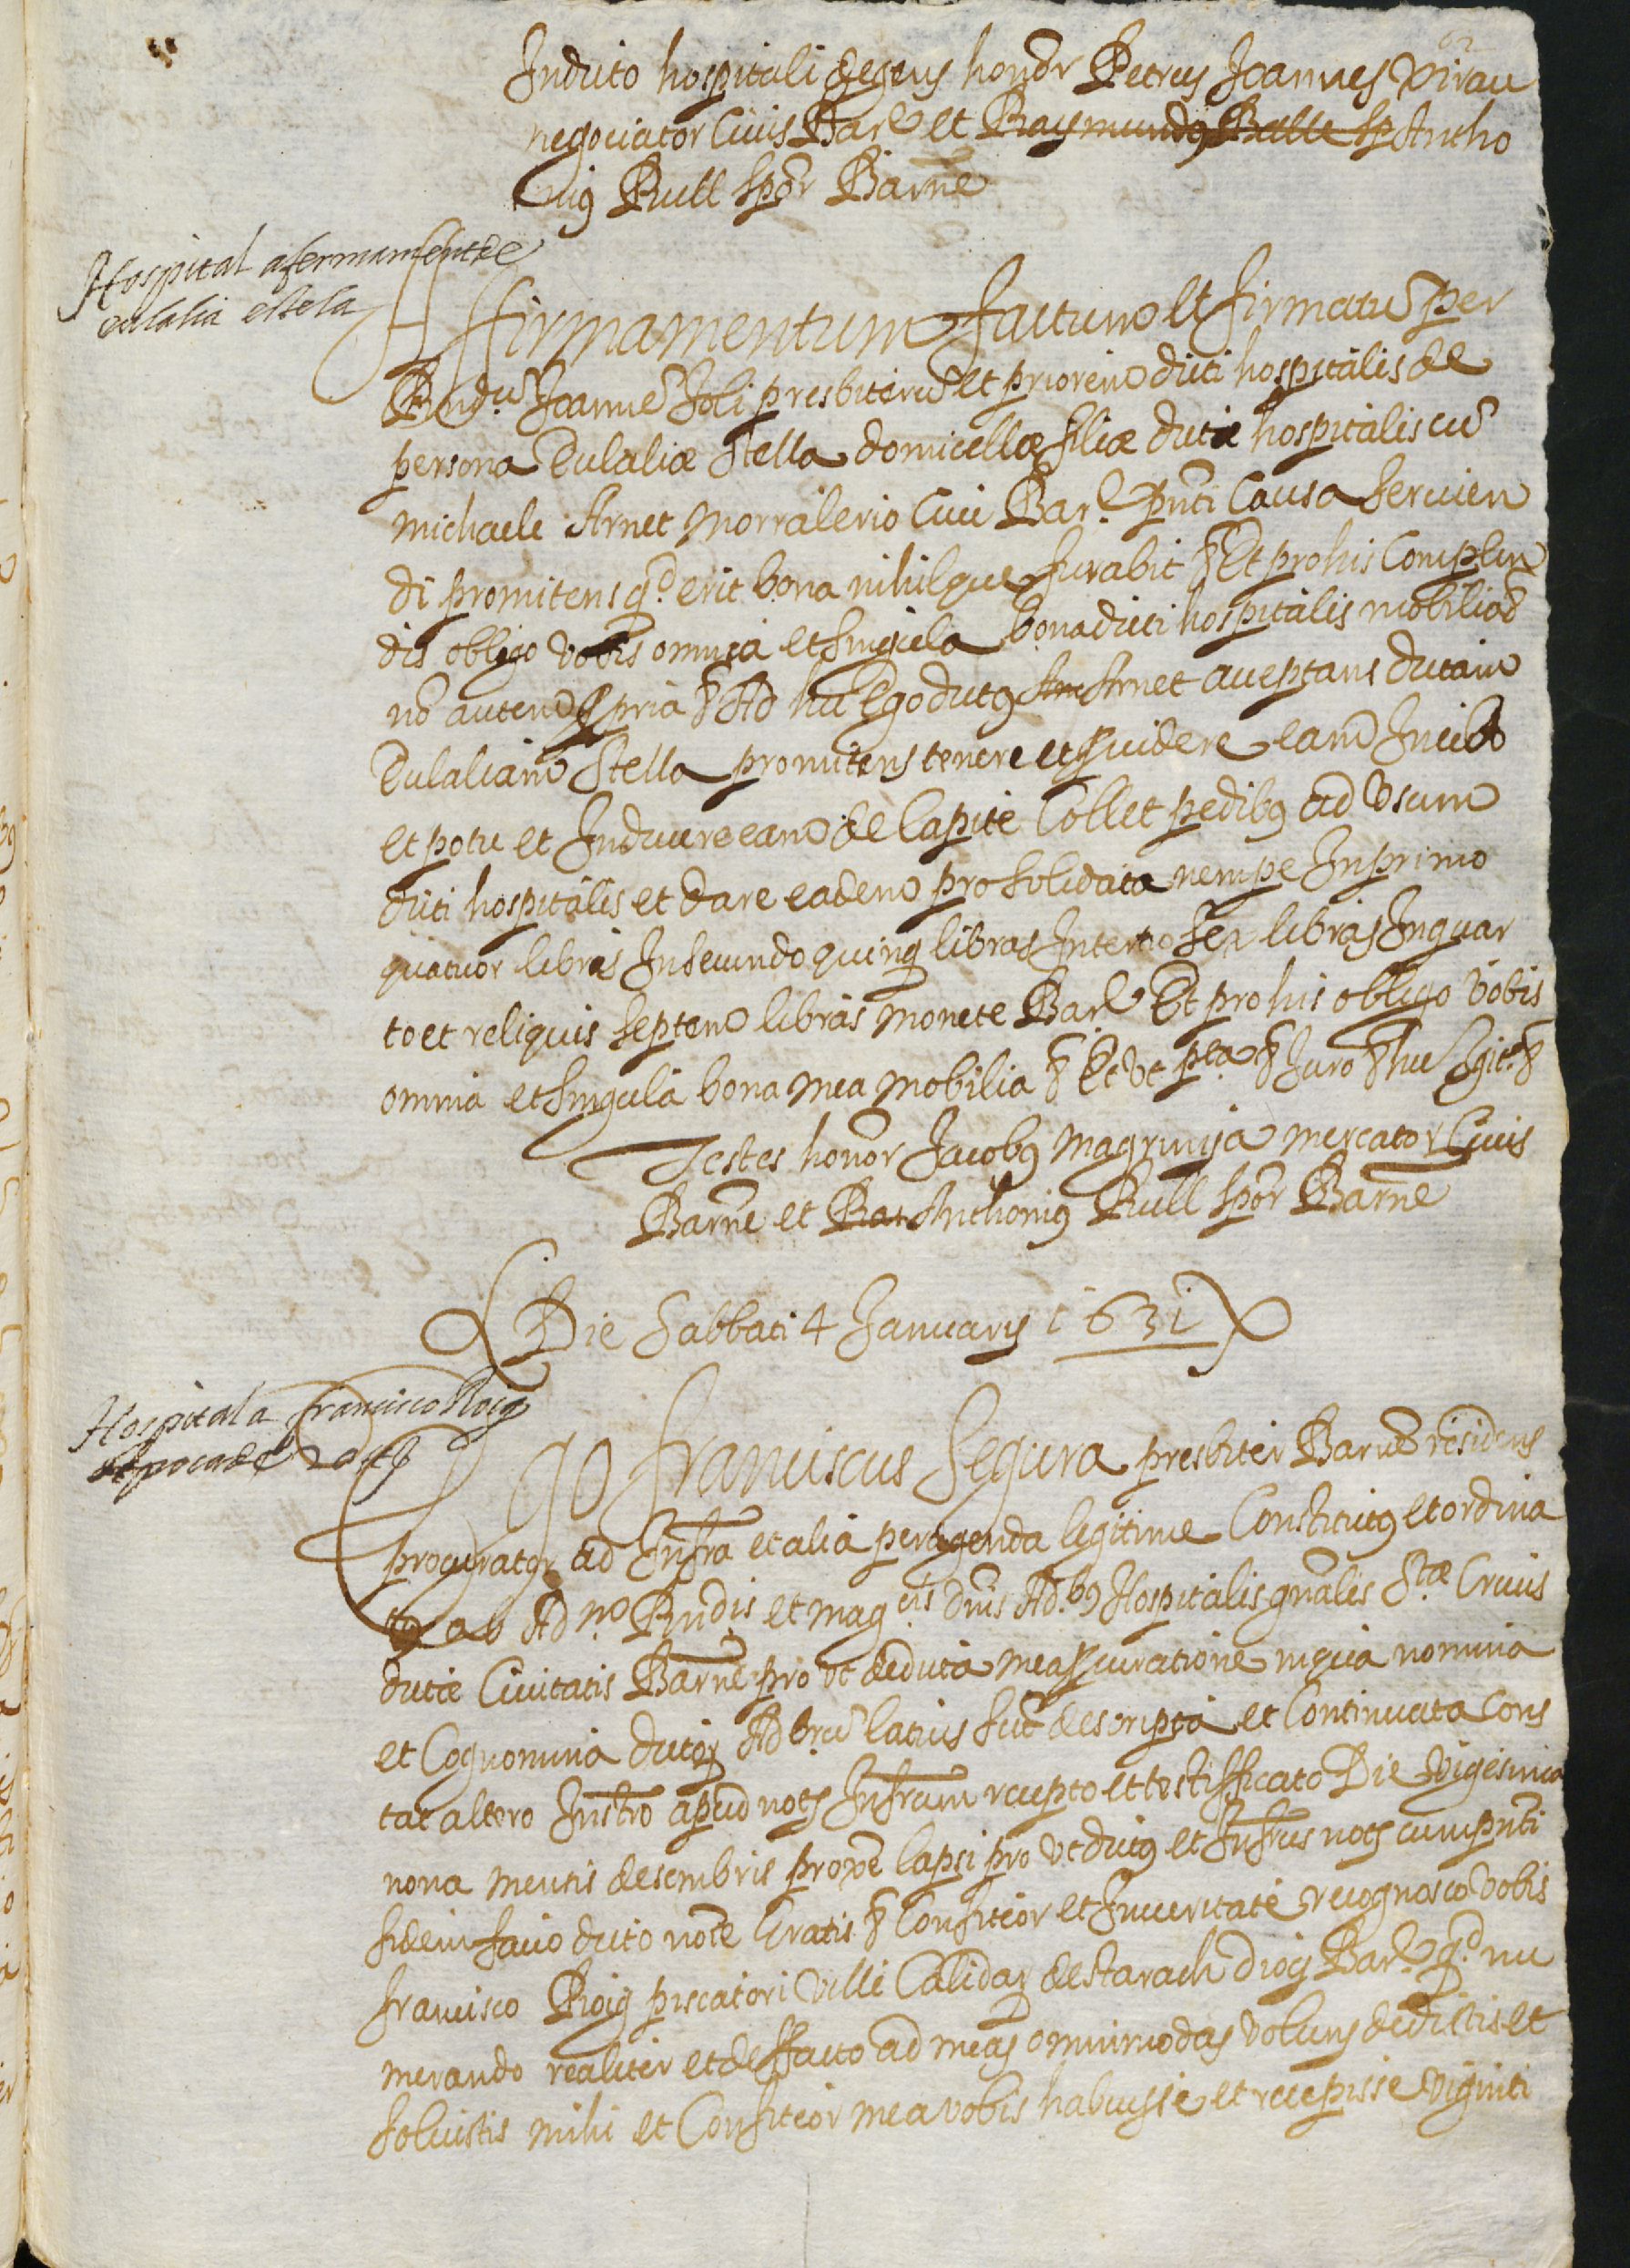 62
Indicto hospitali degens honor Petrus Joannes Virau
negociator Ciuis Bare et Raymundus Bulle sp Antho
nius Rull spor Barne
Hospital afermament de
eulalia estela
Affirmamentum factum et firmatu per
Rndu Joanne Soli presbiteru et priorem dicti hospitalis de
persona Eulaliæ Stella domicellæ filiæ dicte hospitalis cu
michaele Arnet Morralerio Ciui Bar pnti Causa seruien
di promitens qd erit bona nihilque furabit Et pro his Complen
dis obligo vobis omnia et singula bona dicti hospitalis mobilia
no autem ppria Ad hec Ego dictus Arnet acceptans dictam
Eulaliam Stella promitens tenere et puidere eam In cibo
et potu et Induere eam de Capite Collet pedibus ad Vsum
dicti hospitalis et dare eadem pro solidata nempe In primo
quatuor libras In secundo quinq libras In tertio sex libras In quar
to et reliquis septem libras monete Bare Et pro his obligo vobis
omnia et singula bona mea mobilia Et vt pta Juro hec Igit
Testes honor Jacobus Magrinya mercator Ciuis
Barne et Ray Anthonius Rull spor Barne
Die Sabbati 4 Januarij 1631
Hospital a francisco Roig
Apoca de
Ego Franciscus Segura presbiter Barne residens
procurator ad Infra et alia peragenda legitime Constitutus et ordina
tus ab Adm Rndis et magcis dnis Adbus Hospitalis gnalis Stæ Crucis
dicte Ciuitatis Barne pro vt de dicta mea pcuratione in qua nomina
et Cognomina dictor Adorm latius sut descripta et Continuata Cons
tat altero Instro apud nots Infrum recepto et testifficato Die Vigesima
nona mensis desembris proxe lapsi pro vt dictus et Infrus nots cum pnti
fidem facio dicto noe Gratis Confiteor et In veritate recognosco Vobis
francisco Roig piscatori Ville Calidar destarach diocis Bar qd nu
merando realiter et deffacto ad meas omnimodas voluns dedistis et
soluistis mihi et Confiteor mea vobis habuisse et recepisse viginti